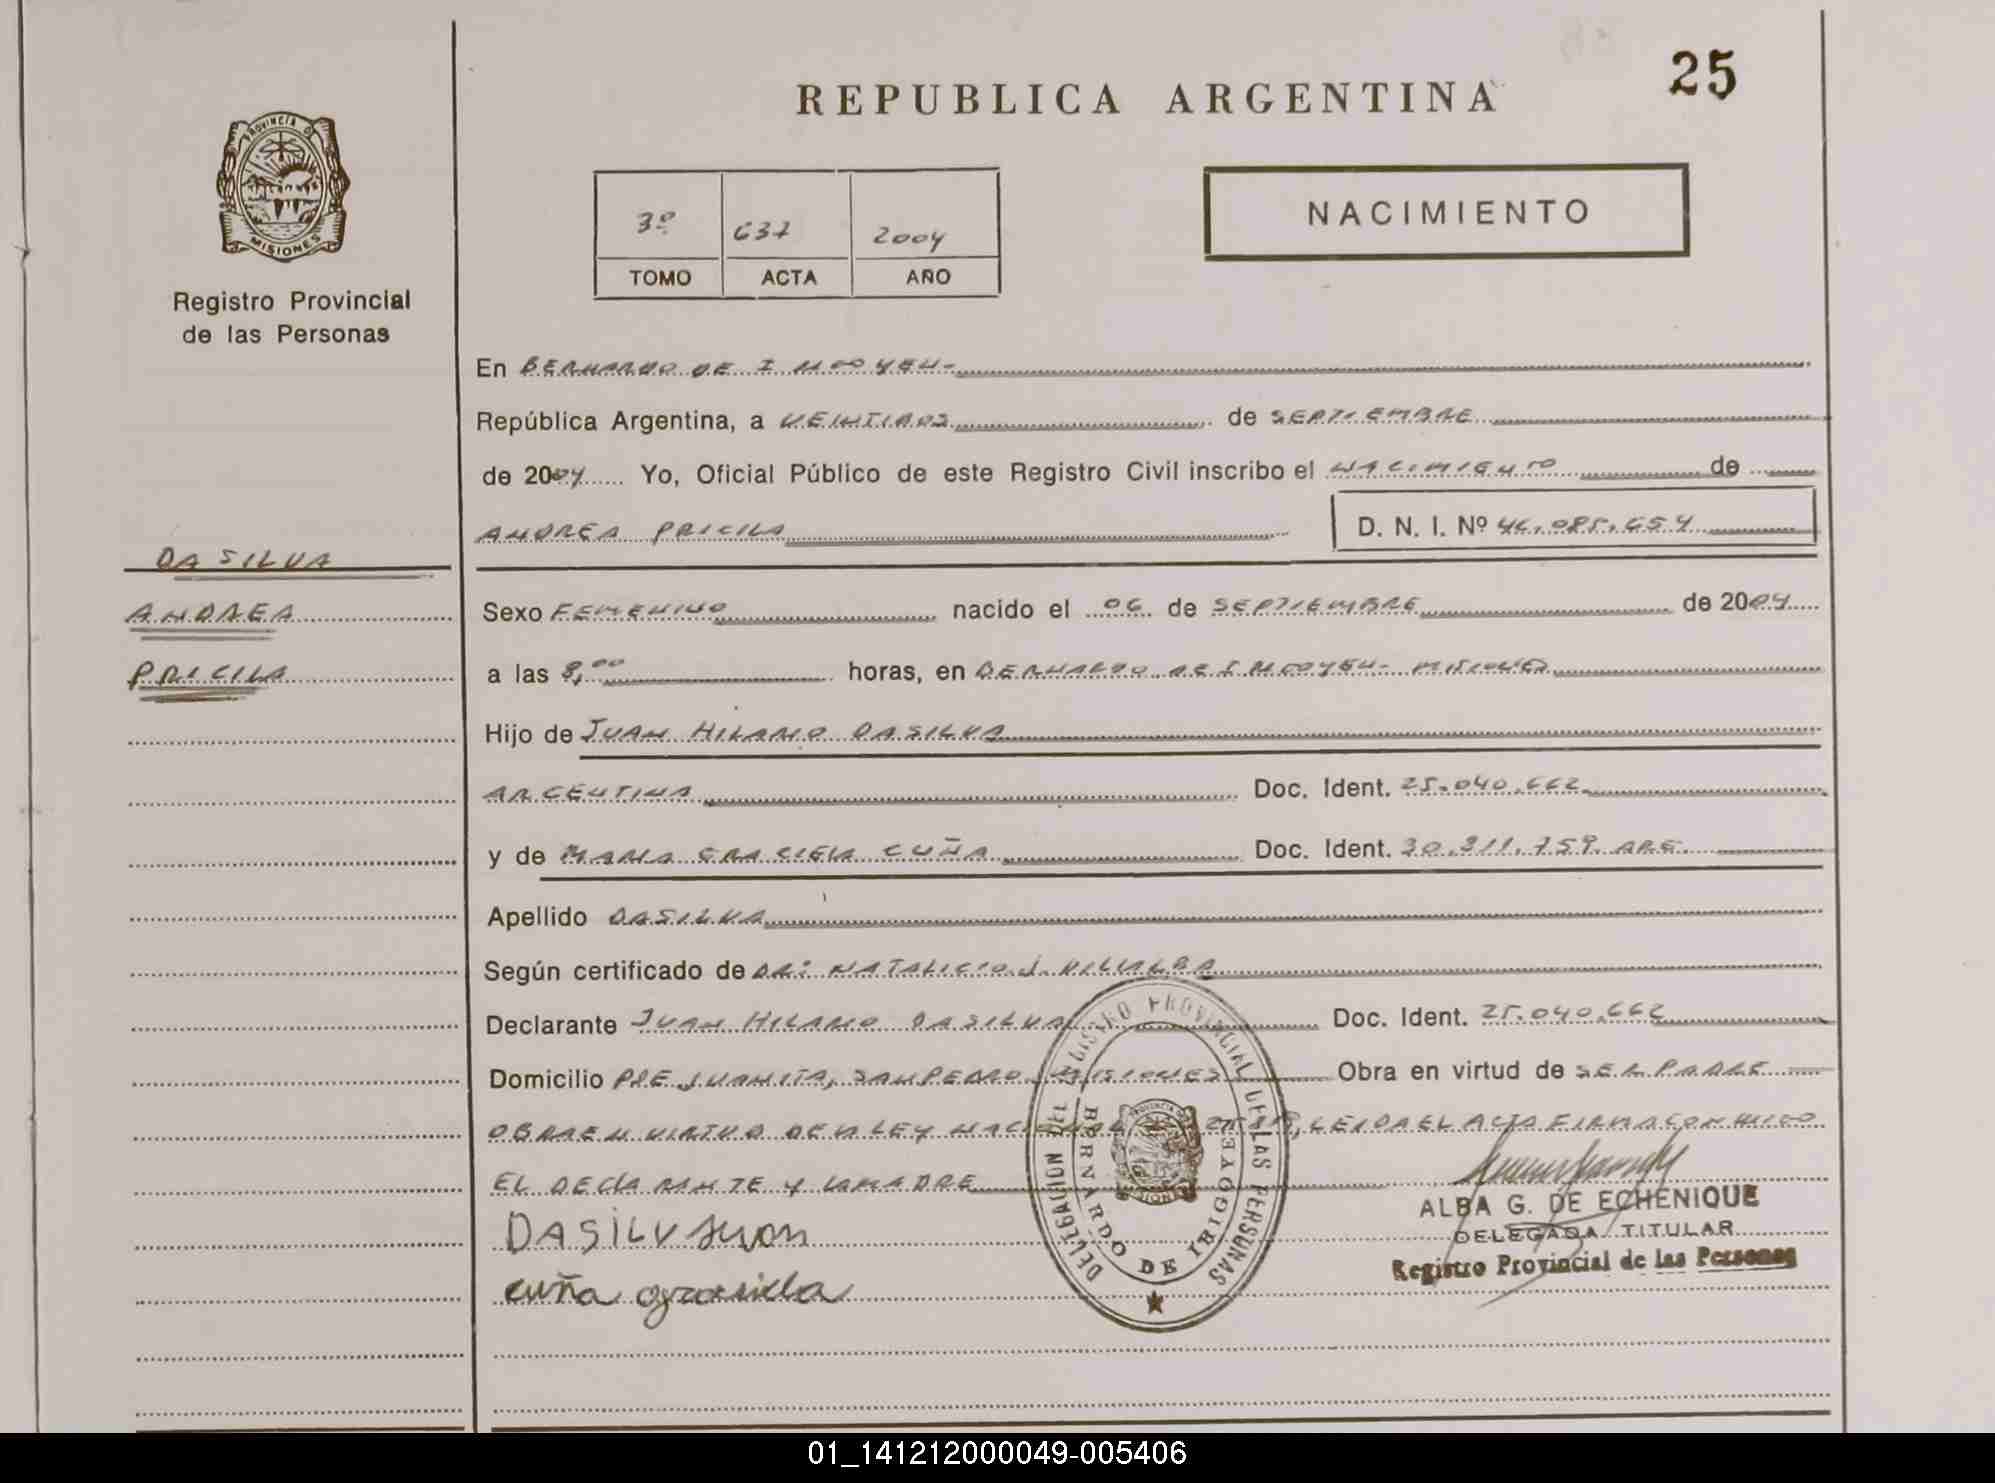 25
REPUBLICA ARGENTINA
PROVINCIA DE
MISIONES
Registro Provincial
de las Personas
3º 637 2004
TOMO ACTA AÑO
NACIMIENTO
En BERNARDO DE IRIGOYEN-
República Argentina, a VEINTIDOS de SEPTIEMBRE
de 2004 Yo, Oficial Público de este Registro Civil inscribo el NACIMIENTO de
ANDREA PRICILA D. N. I. Nº 46.085.654
DA SILVA
ANDREA
PRICILA
Sexo FEMENINO nacido el 06 de SEPTIEMBRE de 2004
a las 8,00 horas, en BERNARDO DE IRIGOYEN- MISIONES
Hijo de JUAN HILARIO DASILVA
ARGENTINA Doc. Ident. 25.040.662
y de MARIA GRACIELA CUÑA Doc. Ident. 30.811.759 ARG.
Apellido DASILVA
Según certificado de DR: NATALICIO J. VILLALBA
Declarante JUAN HILARIO DASILVA Doc. Ident. 25.040.662
Domicilio PJE JUANITA, SAN PEDRO MISIONES Obra en virtud de SER PADRE
OBRA EN VIRTUD DE LA LEY LEIDA EL ACTA FIRMA CONMIGO
EL DECLARANTE Y LA MADRE
DASILV Juan
cuña grasiela
DELEGACION DEL REGISTRO PROVINCIAL DE LAS PERSONAS
BERNARDO DE IRIGOYEN
PROVINCIA DE
MISIONES
ALBA G. DE ECHENIQUE
DELEGADA TITULAR
Registro Provincial de las Personas
01_141212000049-005406